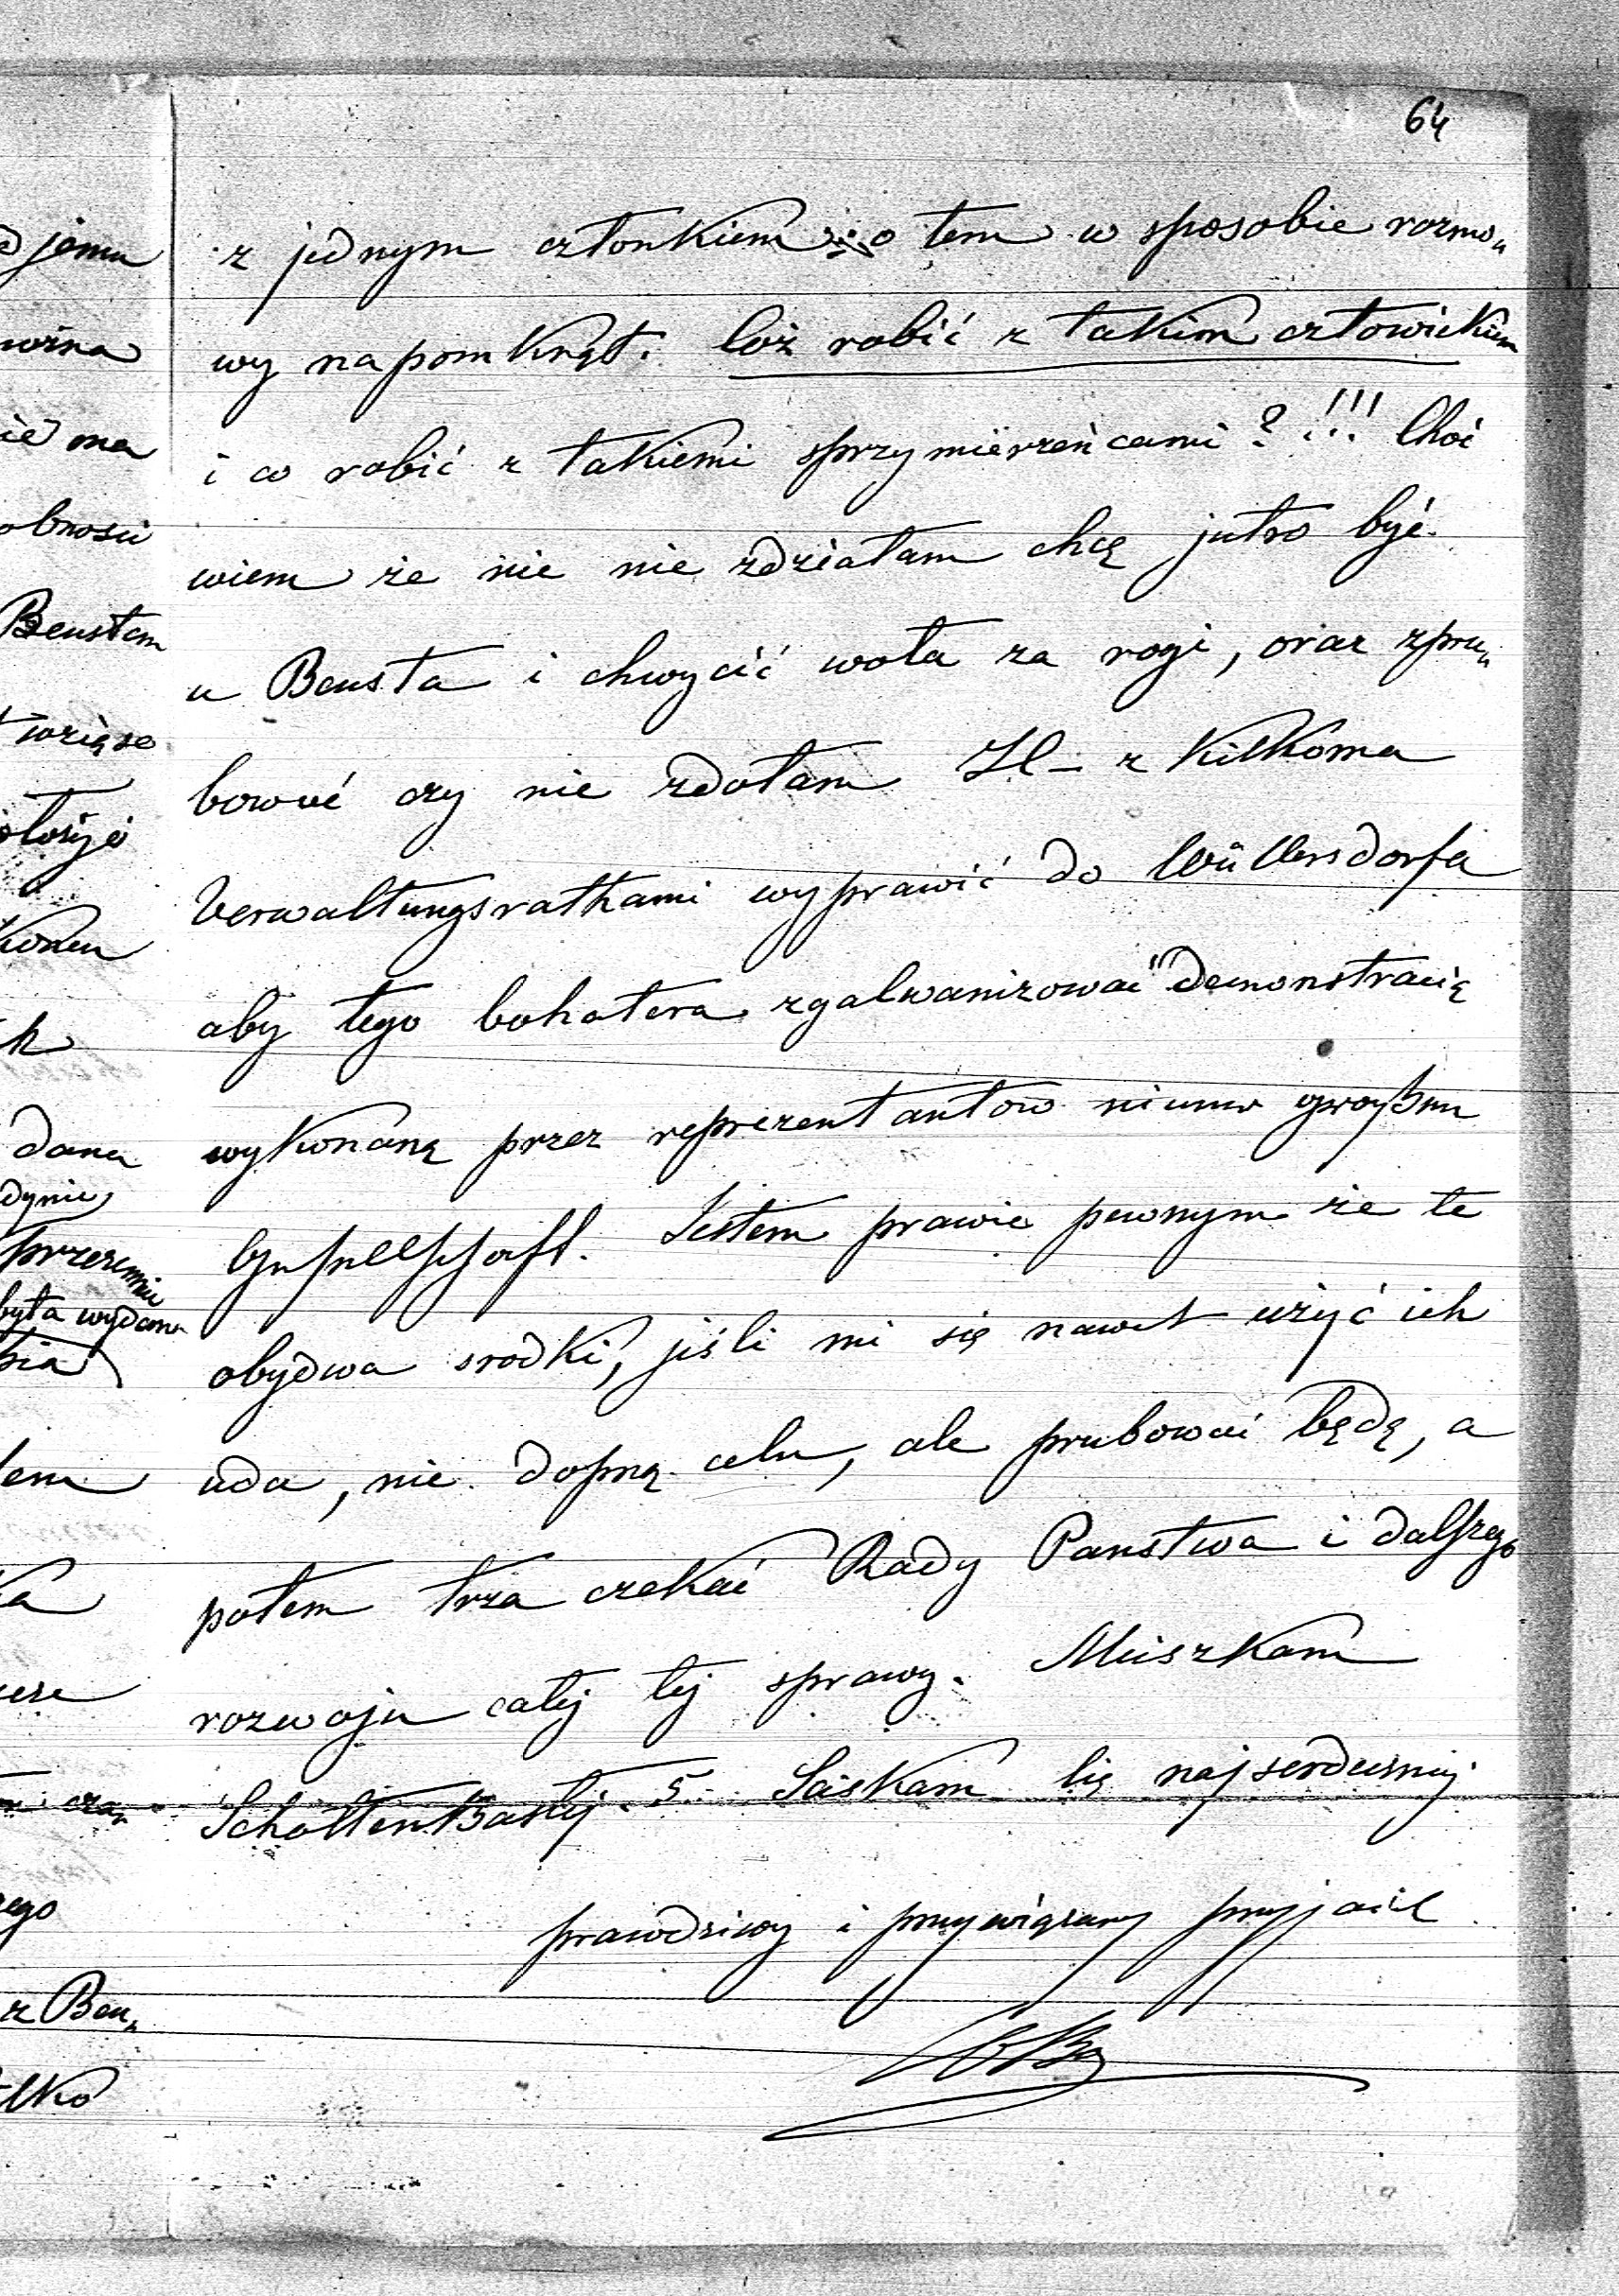 64
z jednym członkiem o tem w sposobie rozmo„
wy napomknął. Cóż robić z takim człowiekiem
i co robić z takiemi sprzymierzeńcami?!!! Choć
wiem że nic nie zdziałam chcę jutro być
u Beusta i chwycić woła za rogi, oraz spru„
bować czy nie zdołam H– z kilkoma
Verwaltungsrathami wyprawić do Wüllersdorfa
aby tego bohatera zgalwanizować "demonstracią
wykonaną przez reprezentantów einer großen
Gesellschaft. Jestem prawie pewnym że te
obydwa srodki, jeśli mi się nawet użyć ich
uda, nie dopną celu, ale prubować będę, a
potem trza czekać Rady Panstwa i dalszego
rozwoju całej tej sprawy. Mieszkam
Schottenbastej 5. Sciskam Cię najserdeczniej
prawdziwy i przywiązany przyjaciel
jemu
ma
Beustem
dana
przezemnie
była wydana
z Beu„